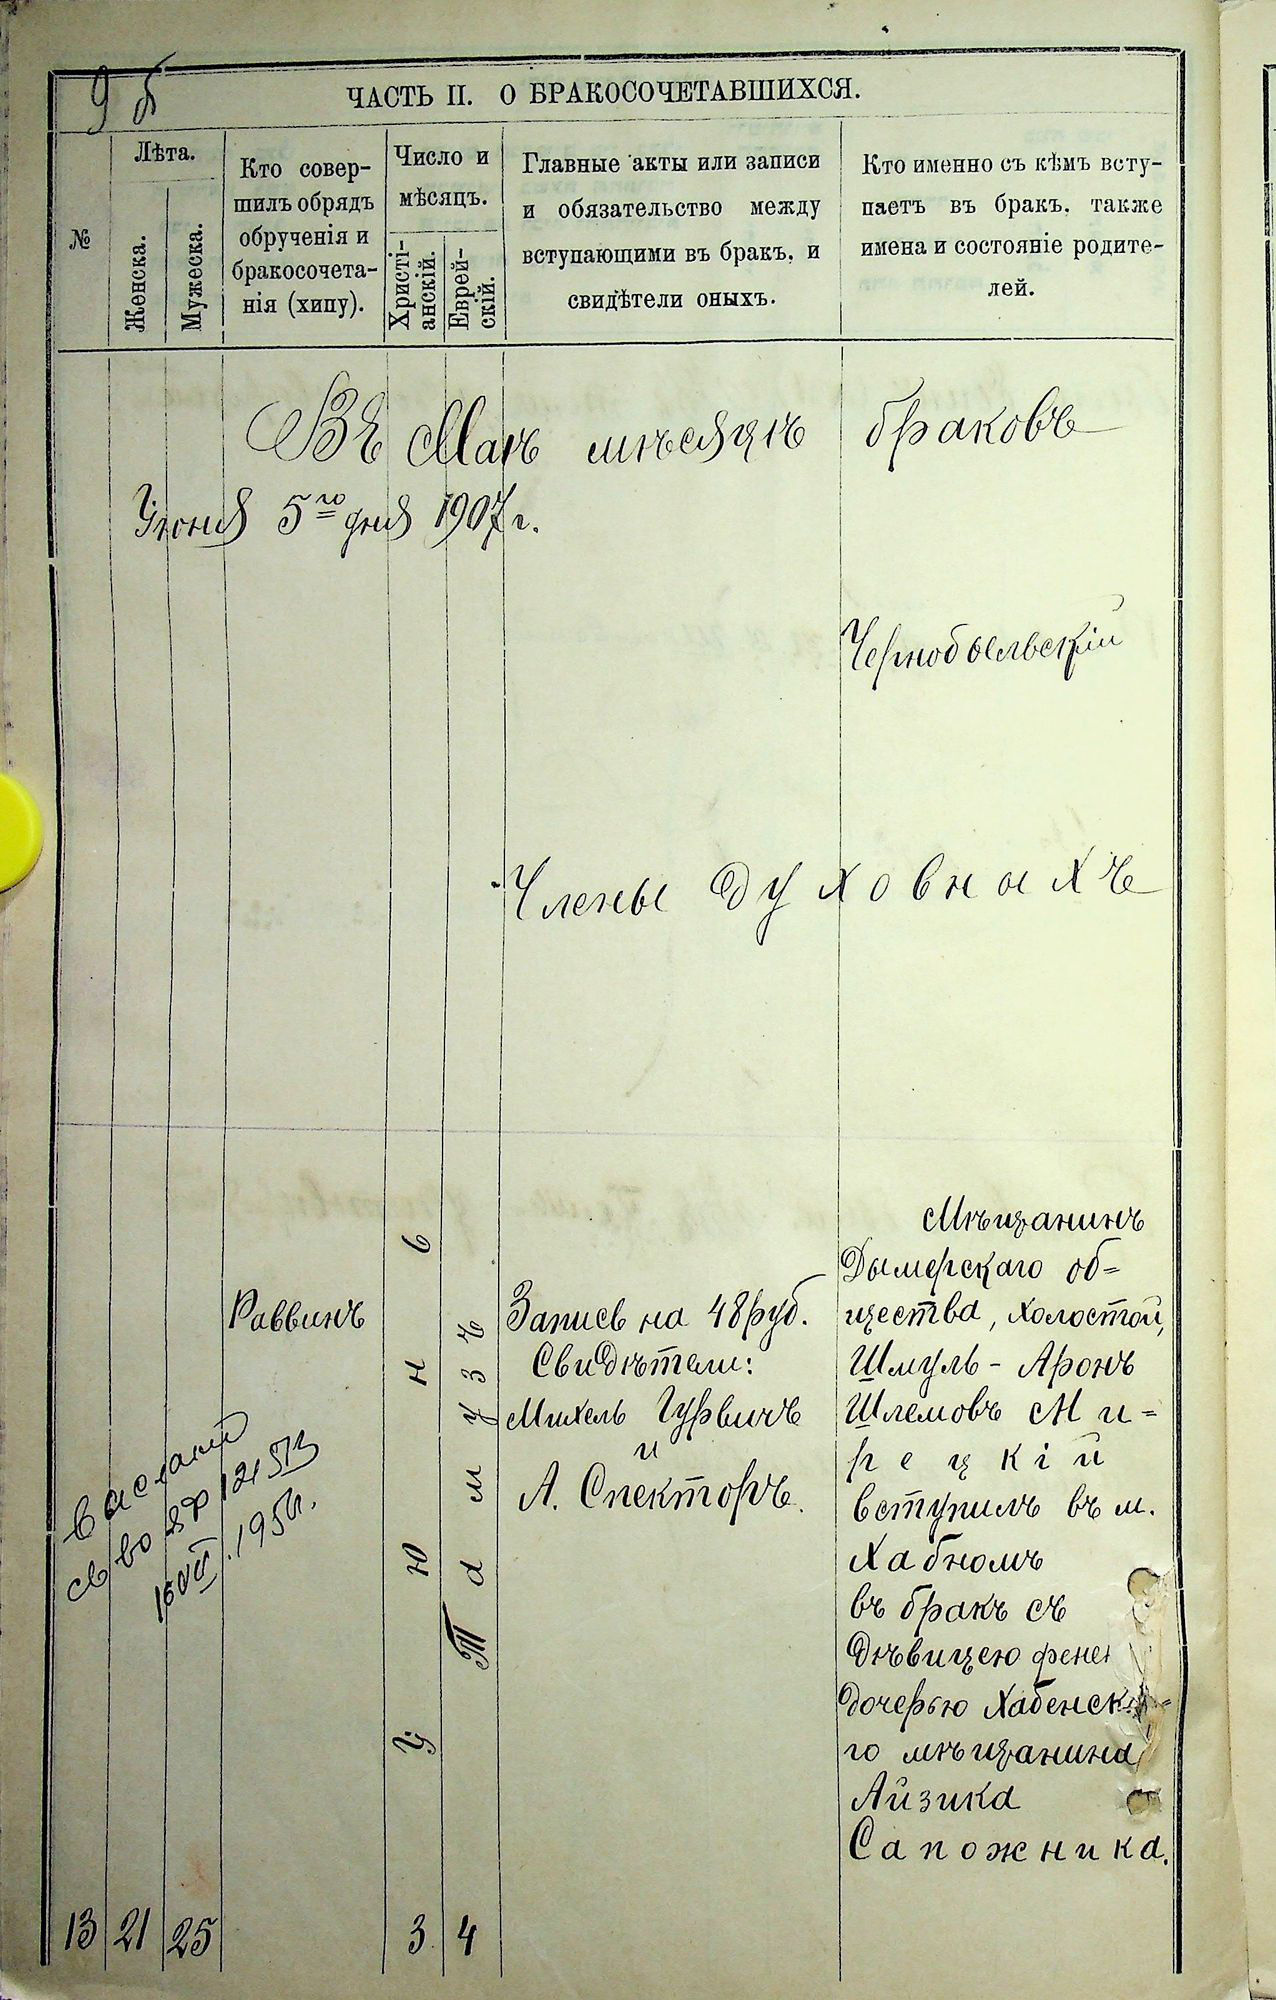 9 б
ЧАСТЬ II. О БРАКОСОЧЕТАВШИХСЯ.
№
Лѣта.
Женска.
Мужеска.
Кто совер-
шилъ обрядъ
обрученія и
бракосочета-
нія (хипу).
Число и
мѣсяцъ.
Христі-
анскій.
Еврей-
скій.
Главные акты или записи
и обязательство между
вступающими въ бракъ, и
свидѣтели оныхъ.
Кто именно съ кѣмъ всту-
паетъ въ бракъ, также
имена и состояніе родите-
лей.
Въ Маѣ мѣсяцѣ браковъ
Іюня 5го дня 1907 г.
Чернобыльскій
Члены Духовныхъ
13
21
25
Раввинъ
3
Іюня
4
Тамузъ
Запись на 48 руб.
Свидѣтели:
Михель Гурвичъ
и
А. Спекторъ.
Мѣщанинъ
Дымерскаго об=
щества, холостой,
Шмуль-Аронъ
Шлемовъ Ми=
рецкій
вступилъ въ м.
Хабномъ
въ бракъ съ
дѣвицею
дочерью Хабенска=
го мѣщанина
Айзика
Сапожника.